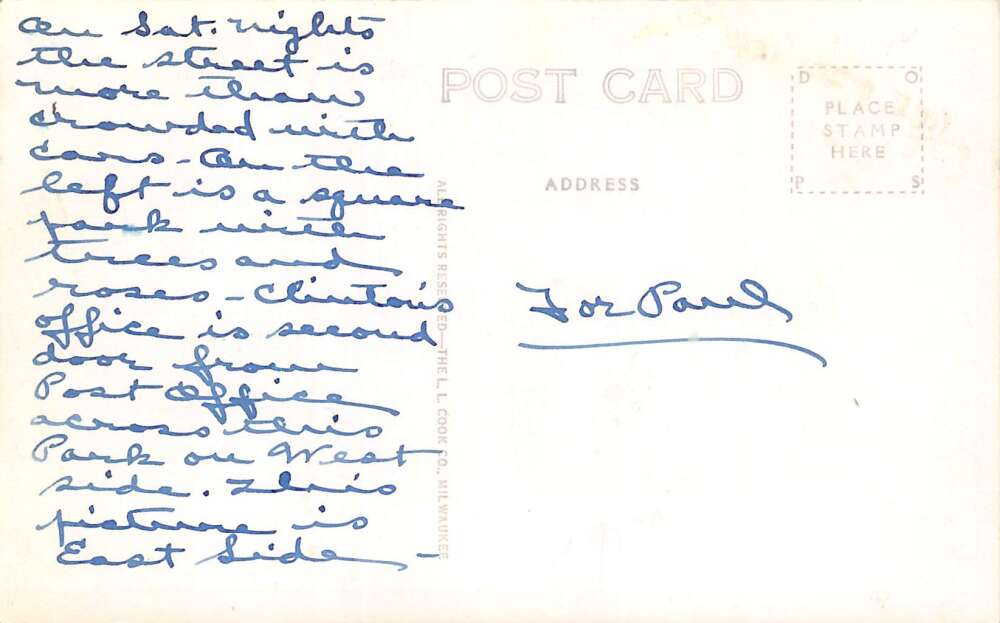 On Sat. nights
the street is
more than
crowded with
cars - On the
left is a square
park with
trees and
roses - Clinton's
office is second
door from
Post Office
across this
Park on West
side. This
picture is
East Side -
POST CARD
ADDRESS
D O
PLACE
STAMP
HERE
P S
For Paul
ALL RIGHTS RESERVED—THE L. L. COOK CO., MILWAUKEE